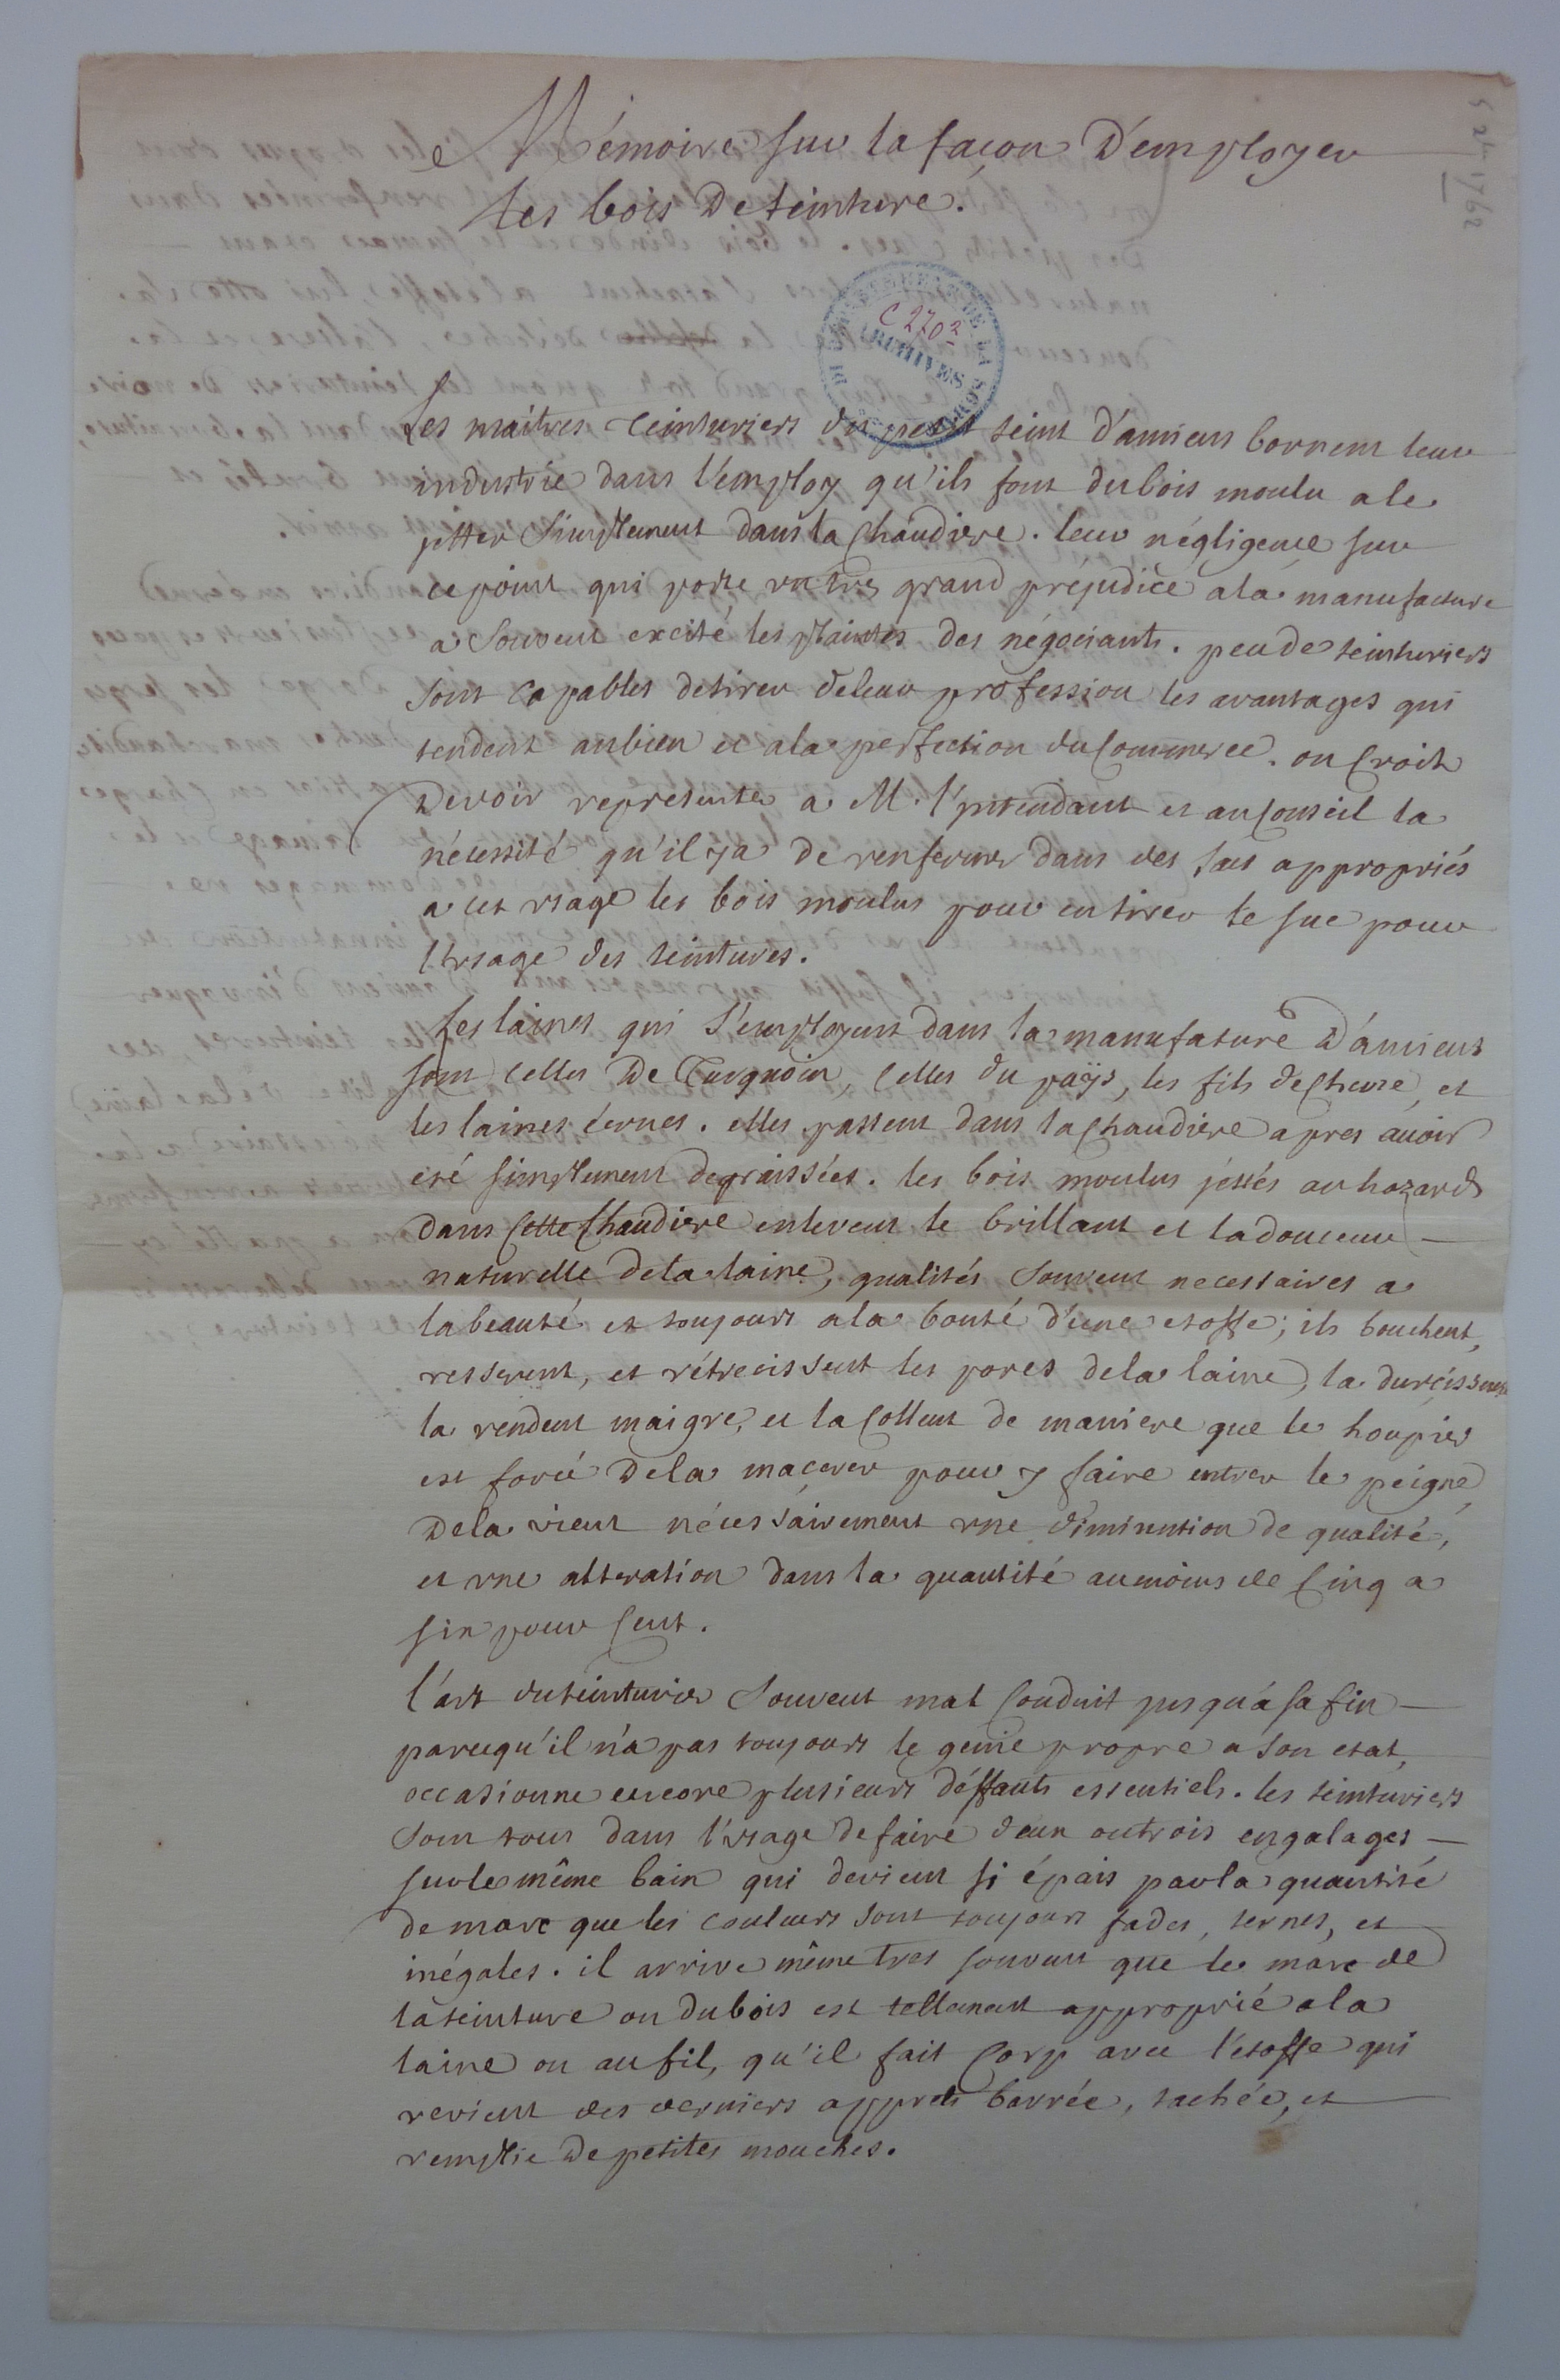 Mémoire sur la facon D'employer
les bois De teinture.
C 2703
ARCHIVES
Les maitres teinturiers du petit teint d'amiens bornent leur
industrie dans l'employ qu'ils font du bois moulu a le
jetter simplement dans la Chaudiere. leur négligence sur
ce point qui porte un tres grand préjudice a la manufacture
a souvent excité les plaintes des négociants. peu de teinturiers
sont capables de tirer de leur profession les avantages qui
tendent au bien et a la perfection du Commerce. on Croit
Devoir representer a M. l'intendant et au Conseil la
nécessité qu'il y a De renfermer dans des sacs appropriés
a cet usage les bois moulus pour en tirer le suc pour
l'usage des teintures.
Les laines qui s'employent dans la manufature D'amiens
sont Celles De Turquoin, Celles du païs, les fils de Chevre, et
les laines . elles passent dans la Chaudiere apres avoir
eté simplement degraissées. les bois moulus jéttés au hazard
dans Cette Chaudiere enlevent le brillant et la douceur
naturelle de la laine, qualités souvent necessaires a
la beauté et toujours a la bonté d'une etoffe; ils bouchent,
resserent, et rétrecissent les pores de la laine, la durcissent
la rendent maigre, et la Collent de maniere que le houpier
est forcé De la macerer pour y faire entrer le peigne,
De la vient nécessairement une diminution de qualité,
et une alteration dans la quantité au moins de Cinq a
six pour Cent.
l'art du teinturier souvent mal Conduit jusqu'a sa fin
parcequ'il n'a pas toujours le genie propre a son etat,
occasionne encore plusieurs déffauts essentiels. les teinturiers
sont tous dans l'usage de faire deux ou trois engalages
sur le même bain qui devient si épais par la quantité
de marc que les couleurs sont toujours fades, ternes, et
inégales. il arrive même tres souvent que le marc de
la teinture ou du bois est tellement approprié a la
laine ou au fil, qu'il fait Corp avec l'étoffe qui
revient des derniers apprets barrée, tachée, et
remplie De petites mouches.